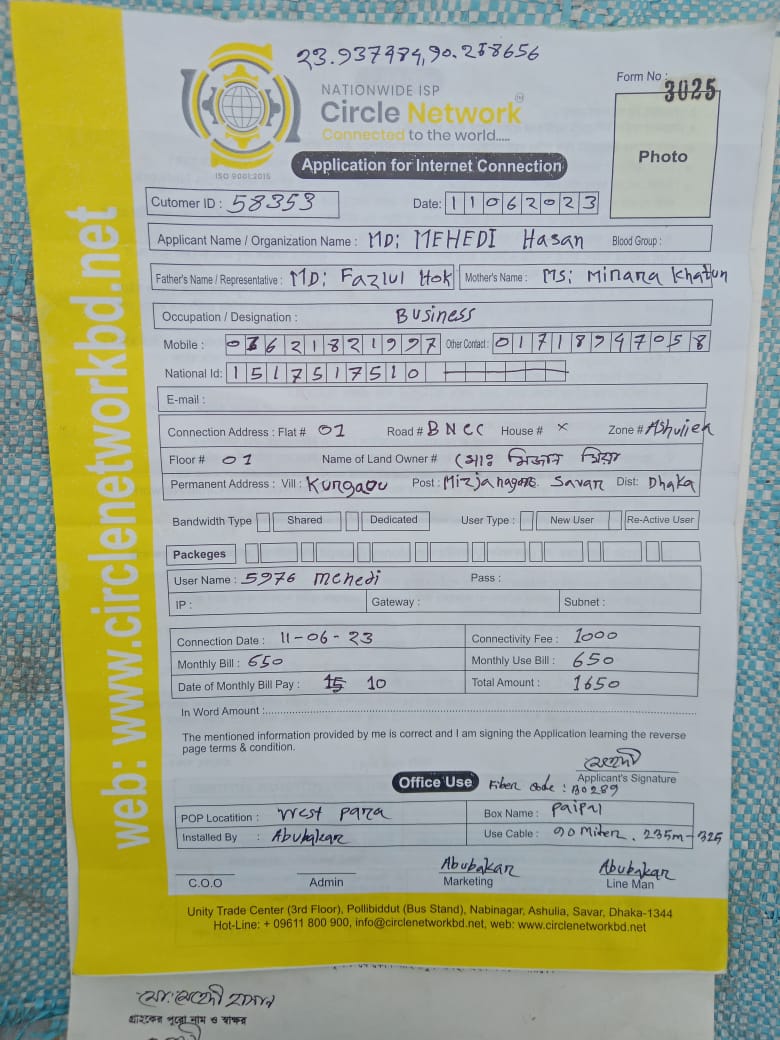 23.937484,90.258656
NATIONWIDE ISP
Circle Network
Connected to the world.....
ISO 9001:2015
Form No : 3025
Photo
Application for Internet Connection
Cutomer ID : 58353 Date: 11062023
Applicant Name / Organization Name : MD: MEHEDI Hasan Blood Group :
Father's Name / Representative : MD: Fazlul Hok Mother's Name : MS: Minara Khatun
Occupation / Designation : Business
Mobile : Other Contact :
National Id: 1517517510
E-mail :
Connection Address : Flat # 01 Road # BNCC House # × Zone # Ashuliea
Floor # 01 Name of Land Owner # মোঃ মিজান মিয়া
Permanent Address : Vill : Kurgaou Post : Mirzanagar Savar Dist: Dhaka
Bandwidth Type Shared Dedicated User Type : New User Re-Active User
Packeges
User Name : 5976 mehedi Pass :
IP : Gateway : Subnet :
Connection Date : 11-06-23 Connectivity Fee : 1000
Monthly Bill : 650 Monthly Use Bill : 650
Date of Monthly Bill Pay : 15 10 Total Amount : 1650
In Word Amount :
The mentioned information provided by me is correct and I am signing the Application learning the reverse
page terms & condition.
মেহেদী
Applicant's Signature
Office Use Fiber code : B0289
POP Locatition : West para Box Name : Paipal
Installed By : Abubakar Use Cable : 90 Miter. 235m-325
Abubakar Abubakar
C.O.O Admin Marketing Line Man
Unity Trade Center (3rd Floor), Pollibiddut (Bus Stand), Nabinagar, Ashulia, Savar, Dhaka-1344
Hot-Line: + 09611 800 900, info@circlenetworkbd.net, web: www.circlenetworkbd.net
web: www.circlenetworkbd.net
মো: মেহেদী হাসান
গ্রাহকের পুরো নাম ও স্বাক্ষর